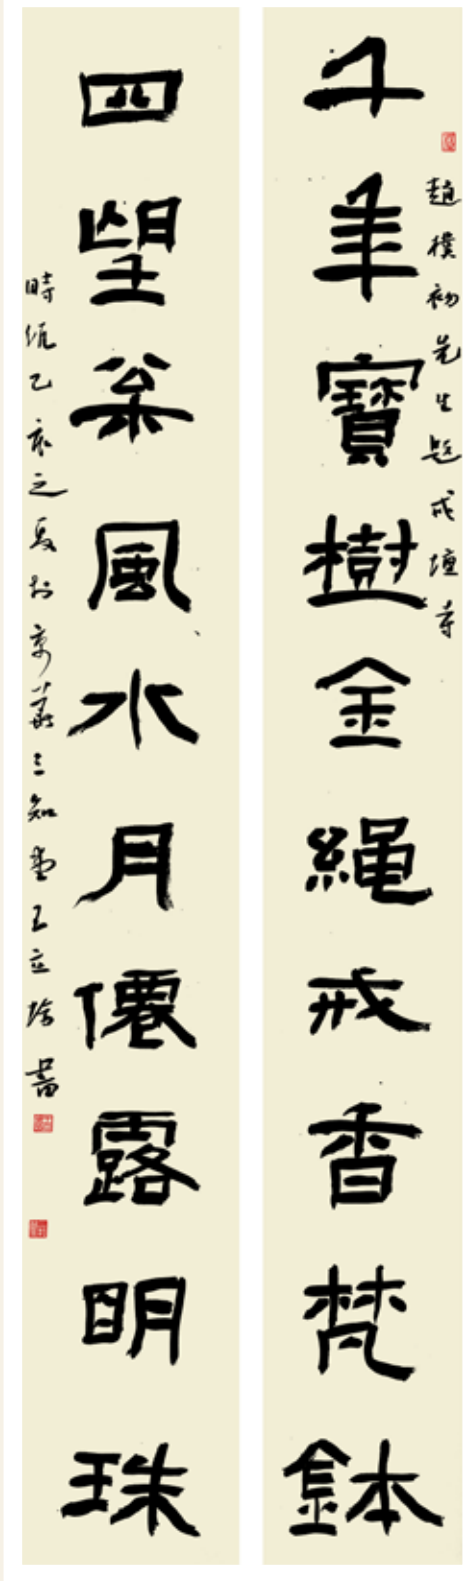 千年寶樹金繩戒香梵鉢
趙樸初先生題戒壇寺
四望枀風水月僊露明珠
時維乙亥之夏於京 三知堂王立 書